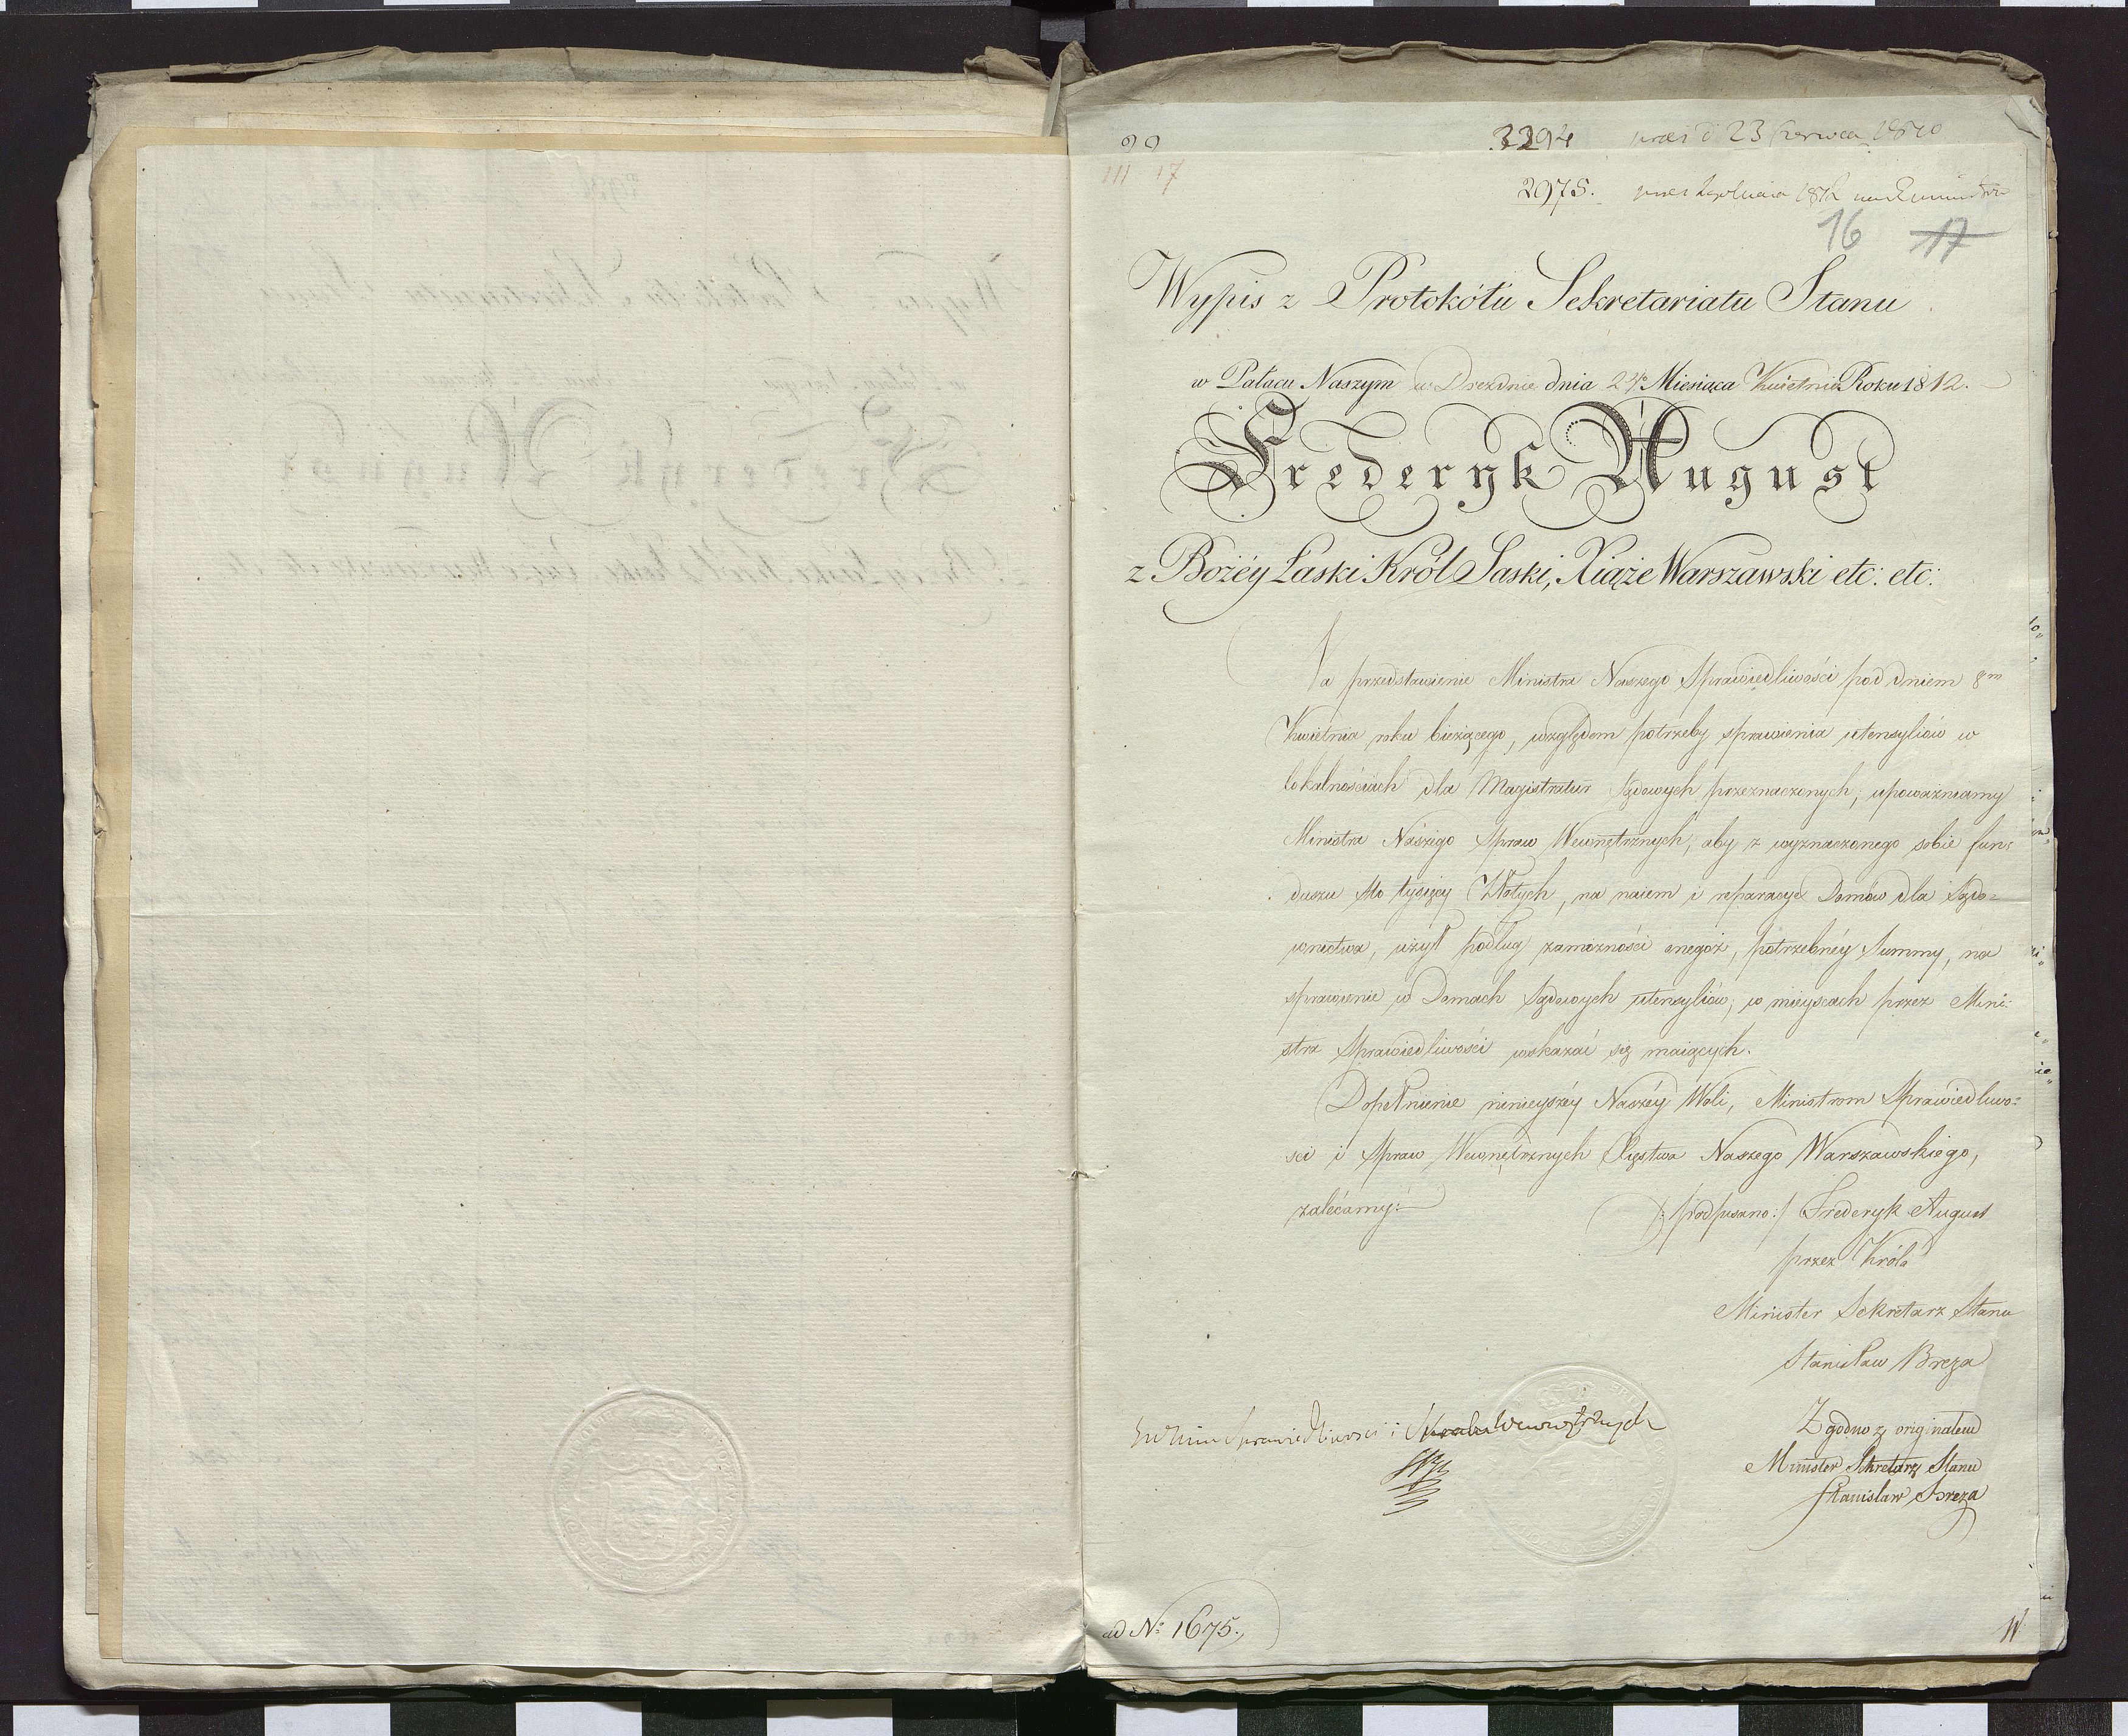 3294 23 Czerwca 1810
III 17
2975.
16 17
Wypis z Protokółu Sekretariatu Stanu
w Pałacu Naszym w Dreznie dnia 24 Miesiąca Kwietnia Roku 1812.
Frederyk August
z Bożéy Łaski Król Saski, Xiąże Warszawski etc: etc:
Na przedstawienie Ministra Naszego Sprawiedliwości pod dniem 8m
Kwietnia roku bieżącego, względem potrzeby sprawienia utensyliów w
lokalnościach dla Magistratur Sądowych przeznaczonych, upoważniamy
Ministra Naszego Spraw Wewnętrznych, aby z wyznaczonego sobie fun=
duszu sto tysięcy Złotych, na naiem i reparacye Domów dla Sądo=
wnictwa, użył podług zamożności onegoż, potrzebnéy Summy, na
sprawienie w Domach Sądowych utensyliów, w mieyscach przez Mini=
stra Sprawiedliwości wskazać się maiących.
Dopełnienie ninieyszéy Naszéy Woli, Ministrom Sprawiedliwo=
ści i Spraw Wewnętrznych Xięstwa Naszego Warszawskiego,
zalecamy.
/:podpisano:/ Frederyk August
przez Króla
Minister Sekretarz Stanu
Stanisław Breza
Sprawiedliwości i Spraw Wewnętrznych
Zgodno z originałem
Minister Sekretarz Stanu
Stanisław Breza
ad No 1675.